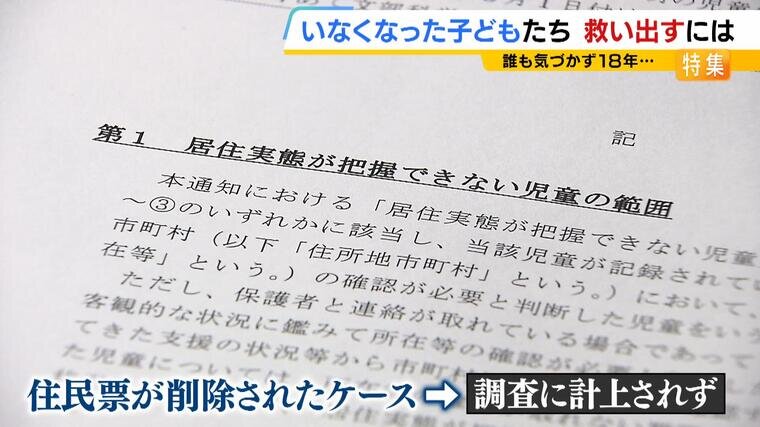 いなくなった子どもたち 救い出すには
誰も気づかず18年…
特集
記
第1 居住実態が把握できない児童の範囲
本通知における「居住実態が把握できない児童
～③のいずれかに該当し、当該児童が記録されてい
市町村（以下「住所地市町村」という。）において、
在等」という。）の確認が必要と判断した児童をいう
ただし、保護者と連絡が取れている場合であって
客観的な状況に鑑みて所在等の確認が必要
てきた支援の状況等から市町村
た児童については
住民票が削除されたケース➡調査に計上されず